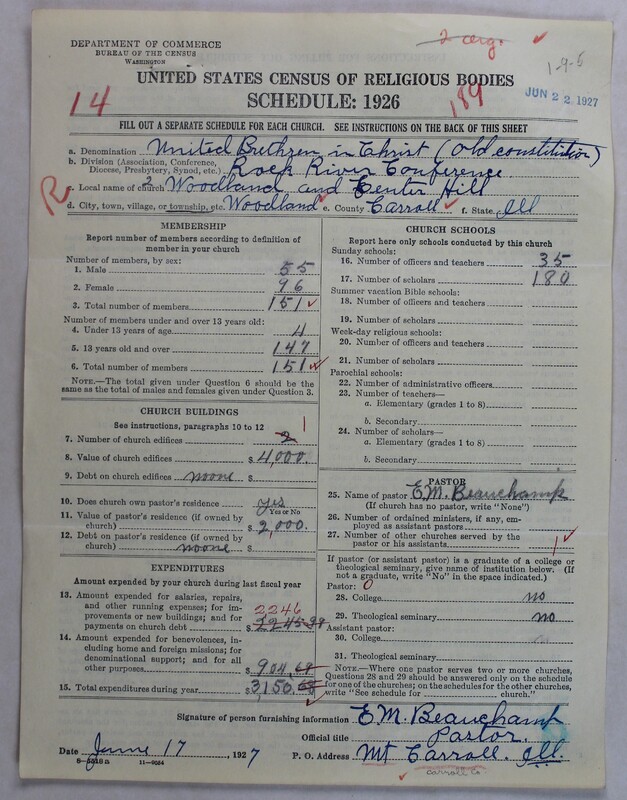 2 org.
1-9-6
DEPARTMENT OF COMMERCE
BUREAU OF THE CENSUS
WASHINGTON
UNITED STATES CENSUS OF RELIGIOUS BODIES
SCHEDULE: 1926
14
189
JUN 22 1927
FILL OUT A SEPARATE SCHEDULE FOR EACH CHURCH. SEE INSTRUCTIONS ON THE BACK OF THIS SHEET
a. Denomination United Brethren in Christ (old constitution)
b. Division (Association, Conference, Diocese, Presbytery, Synod, etc.) Rock River Conference
R
c. Local name of church Woodland and Center Hill
d. City, town, village, or township, etc. Woodland e. County Carroll f. State Ill
MEMBERSHIP
Report number of members according to definition of
member in your church
Number of members, by sex:
1. Male 55
2. Female 96
3. Total number of members 151
Number of members under and over 13 years old:
4. Under 13 years of age 4
5. 13 years old and over 147
6. Total number of members 151
NOTE.—The total given under Question 6 should be the
same as the total of males and females given under Question 3.
CHURCH BUILDINGS
See instructions, paragraphs 10 to 12
7. Number of church edifices 2 1
8. Value of church edifices $ 4,000.
9. Debt on church edifices noone $
10. Does church own pastor's residence yes
Yes or No
11. Value of pastor's residence (if owned by
church) $ 2,000.
12. Debt on pastor's residence (if owned by
church) noone $
EXPENDITURES
Amount expended by your church during last fiscal year
13. Amount expended for salaries, repairs,
and other running expenses; for im-
provements or new buildings; and for
payments on church debt $ 2245.99 2246
14. Amount expended for benevolences,
including home and foreign missions; for
denominational support; and for all
other purposes $ 904.68
15. Total expenditures during year $ 3,150.68
CHURCH SCHOOLS
Report here only schools conducted by this church
Sunday schools:
16. Number of officers and teachers 35
17. Number of scholars 180
Summer vacation Bible schools:
18. Number of officers and teachers
19. Number of scholars
Week-day religious schools:
20. Number of officers and teachers
21. Number of scholars
Parochial schools:
22. Number of administrative officers
23. Number of teachers—
a. Elementary (grades 1 to 8)
b. Secondary
24. Number of scholars—
a. Elementary (grades 1 to 8)
b. Secondary
PASTOR
25. Name of pastor E.M. Beauchamp
(If church has no pastor, write "None")
26. Number of ordained ministers, if any, em-
ployed as assistant pastors
27. Number of other churches served by the
pastor or his assistants 1
If pastor (or assistant pastor) is a graduate of a college or
theological seminary, give name of institution below. (If
not a graduate, write "No" in the space indicated.)
Pastor: 0
28. College no
29. Theological seminary no
Assistant pastor:
30. College
31. Theological seminary
NOTE.—Where one pastor serves two or more churches,
Questions 28 and 29 should be answered only on the schedule
for one of the churches; on the schedules for the other churches,
write "See schedule for church."
Signature of person furnishing information E.M. Beauchamp
Official title Pastor.
Date June 17, 1927
P. O. Address Mt Carroll. Ill.
8—5518a 11—9054
Carroll Co